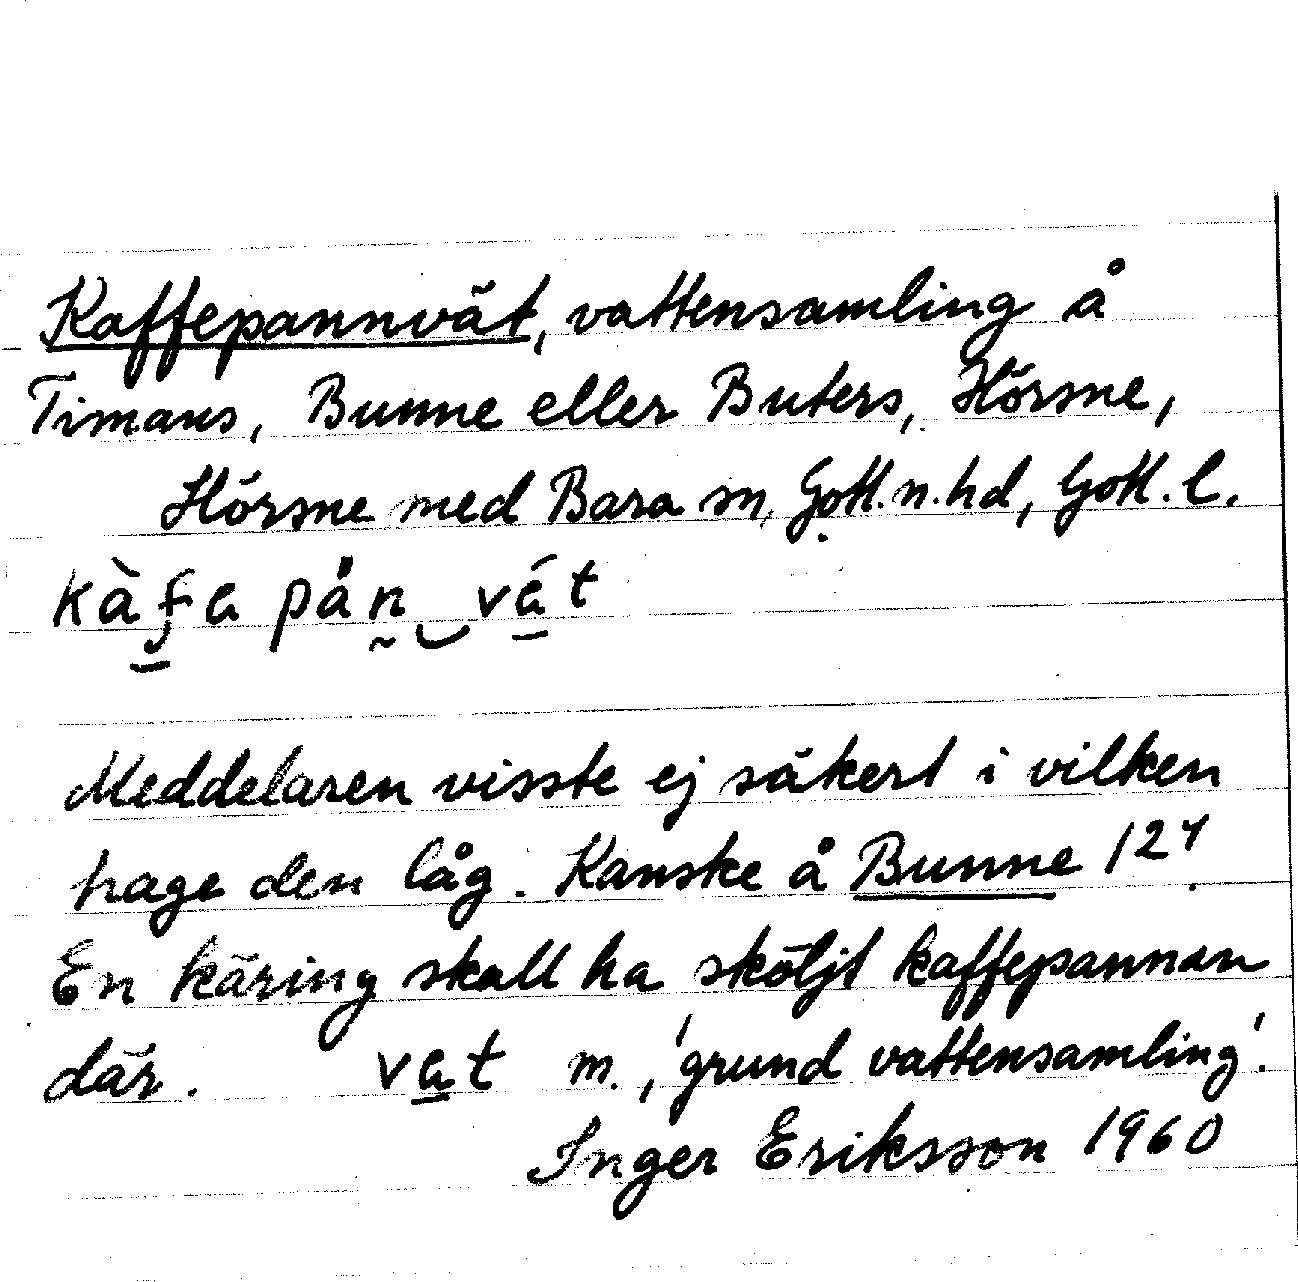 Kaffepannvät, vattensamling å
Timans, Bunne eller Buters, Hörsne,
Hörsne med Bara sn, Gotl. n. hd, Gotl. l.
kàfa pån vát
Meddelaren visste ej säkert i vilken
hage den låg. Kanske å Bunne 1²⁴
En käring skall ha sköljt kaffepannan
där. vat m., 'grund vattensamling'.
Inger Eriksson 1960